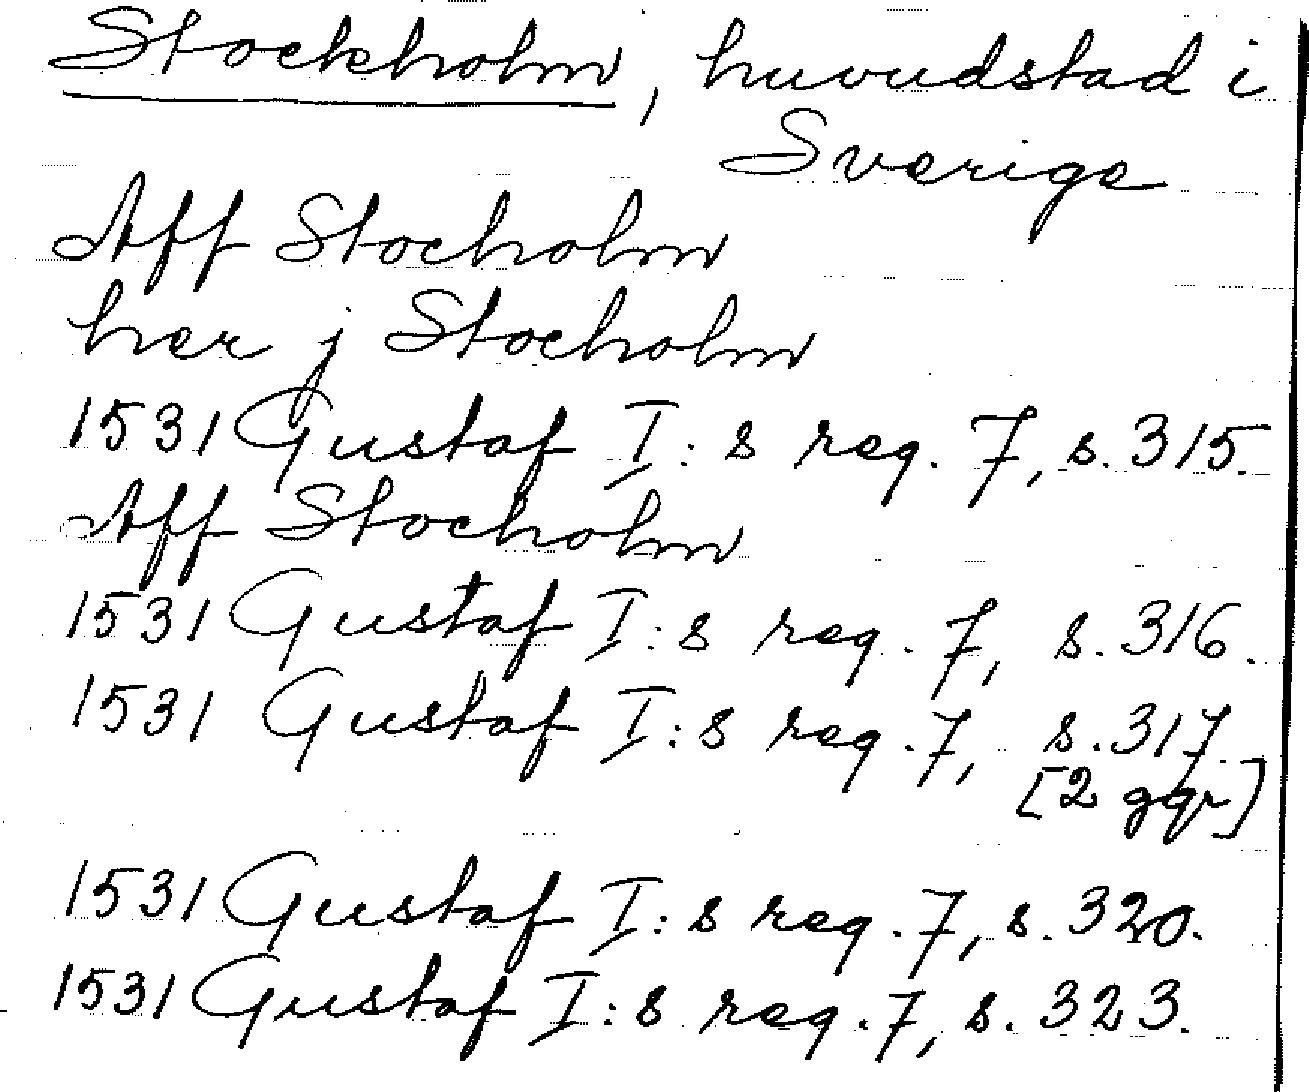 Stockholm, huvudstad i
Sverige
Aff Stocholm
her j Stocholm
1531 Gustaf I:s reg. 7, s. 315.
Aff Stocholm
1531 Gustaf I:s reg. 7, s. 316.
1531 Gustaf I:s reg. 7, s. 317.
[2 ggr]
1531 Gustaf I:s reg. 7, s. 320.
1531 Gustaf I:s reg. 7, s. 323.